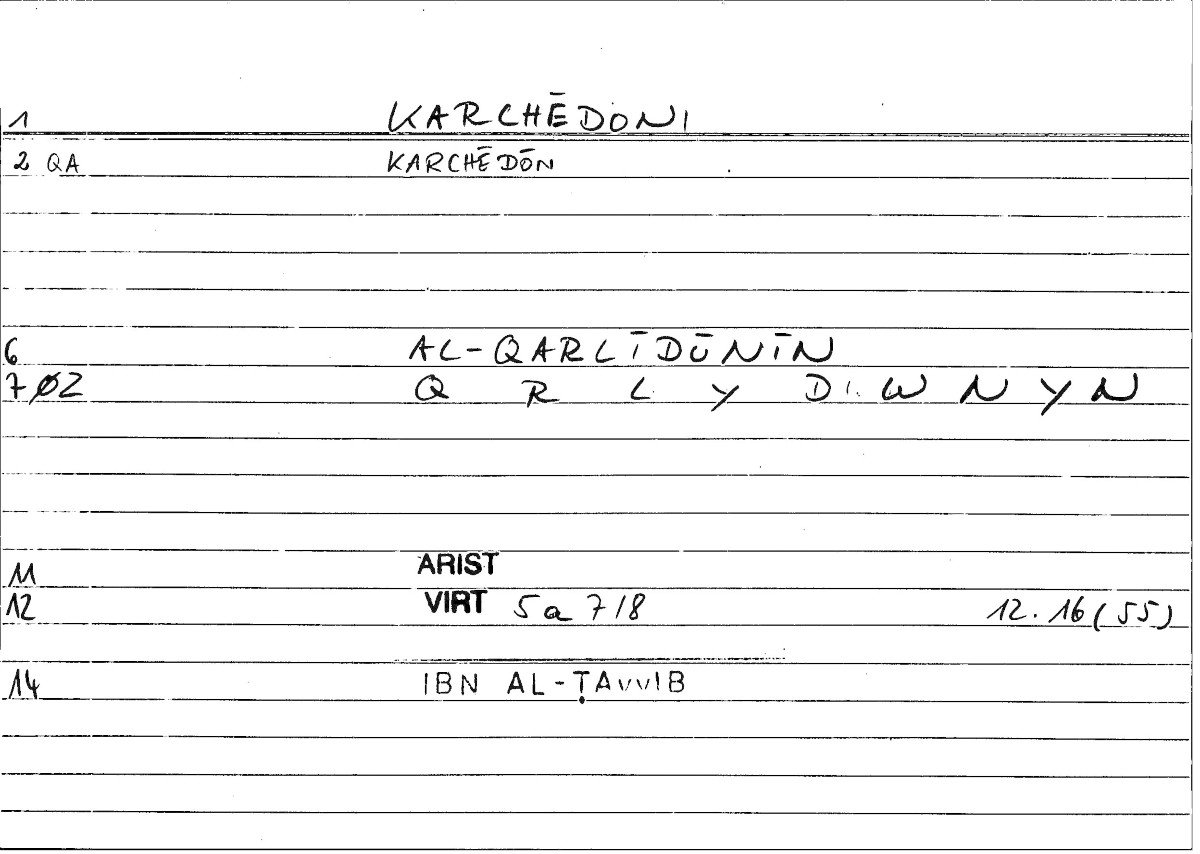 1 KARCHĒDONI
2 QA KARCHĒDŌN
6 AL-QARLĪDŪNĪN
7 ØZ Q R L Y D W N Y N
11 ARIST
12 VIRT 5a 7/8 12.16(55)
14 IBN AL-ṬAYYIB